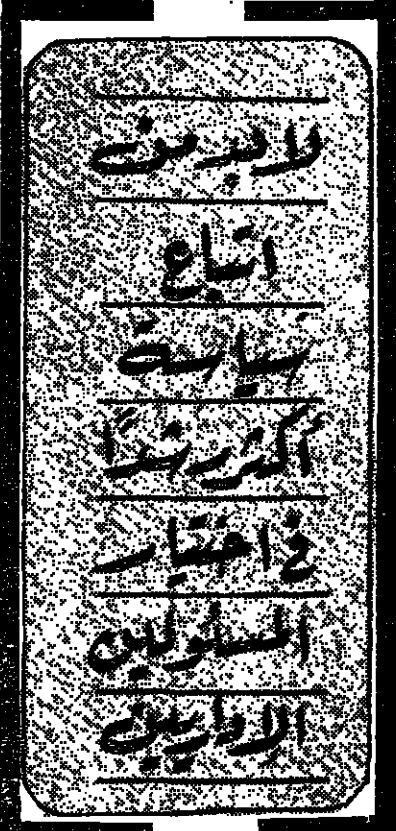 لا بد من
اتباع
سياسة
أكثر رشدًا
في اختيار
المسئولين
الإداريين